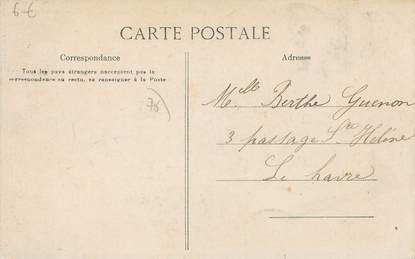 6-€
CARTE POSTALE
Correspondance
Tous les pays étrangers n'acceptent pas la
correspondance au recto, se renseigner à la Poste
76
Adresse
Melle Berthe Guenon
3 passage Ste Hélène
Le havre